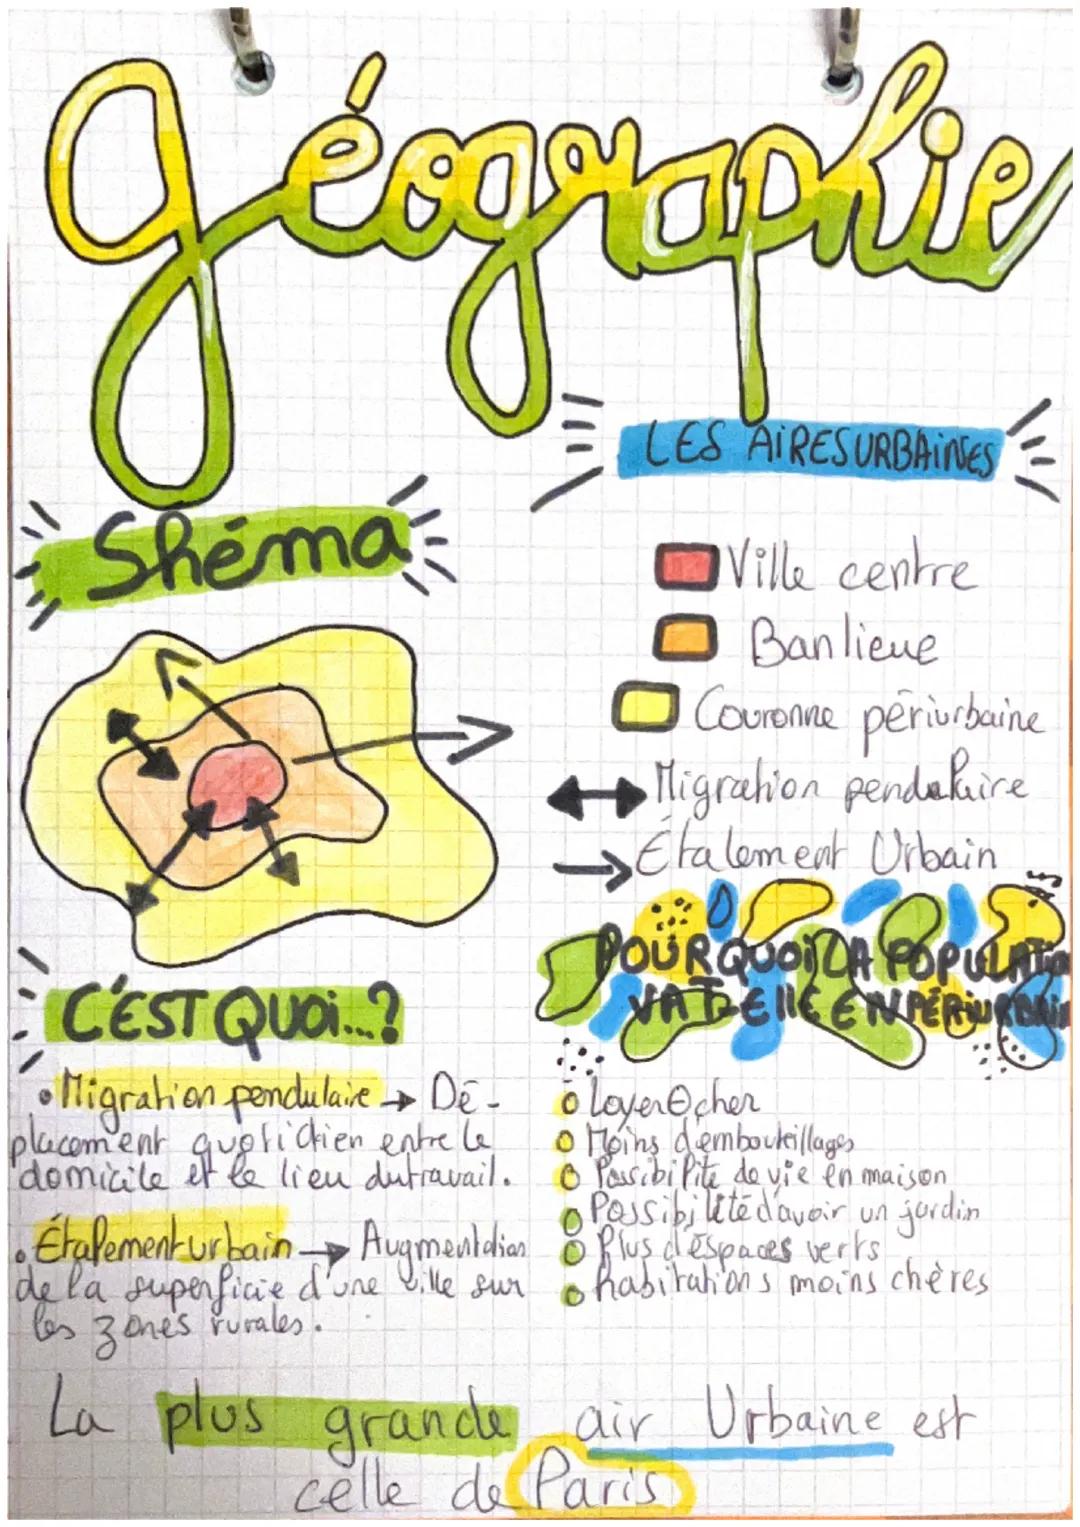 Géographie
LES AIRES URBAINES
Shéma
Ville centre
Banlieue
Couronne périurbaine
Migration pendulaire
Étalement Urbain
POURQUOI LA POPULATIO
VA T-ELLE EN PÉRIURBAIN
C'EST QUOI...?
• Migration pendulaire → Dé-
placement quotidien entre le
domicile et le lieu du travail.
• Étalement urbain → Augmentation
de la superficie d'une ville sur
les zones rurales.
Loyer cher
Moins d'embouteillages
Possibilité de vie en maison
Possibilité d'avoir un jardin
Plus d'espaces verts
habitations moins chères
La plus grande air Urbaine est
celle de Paris